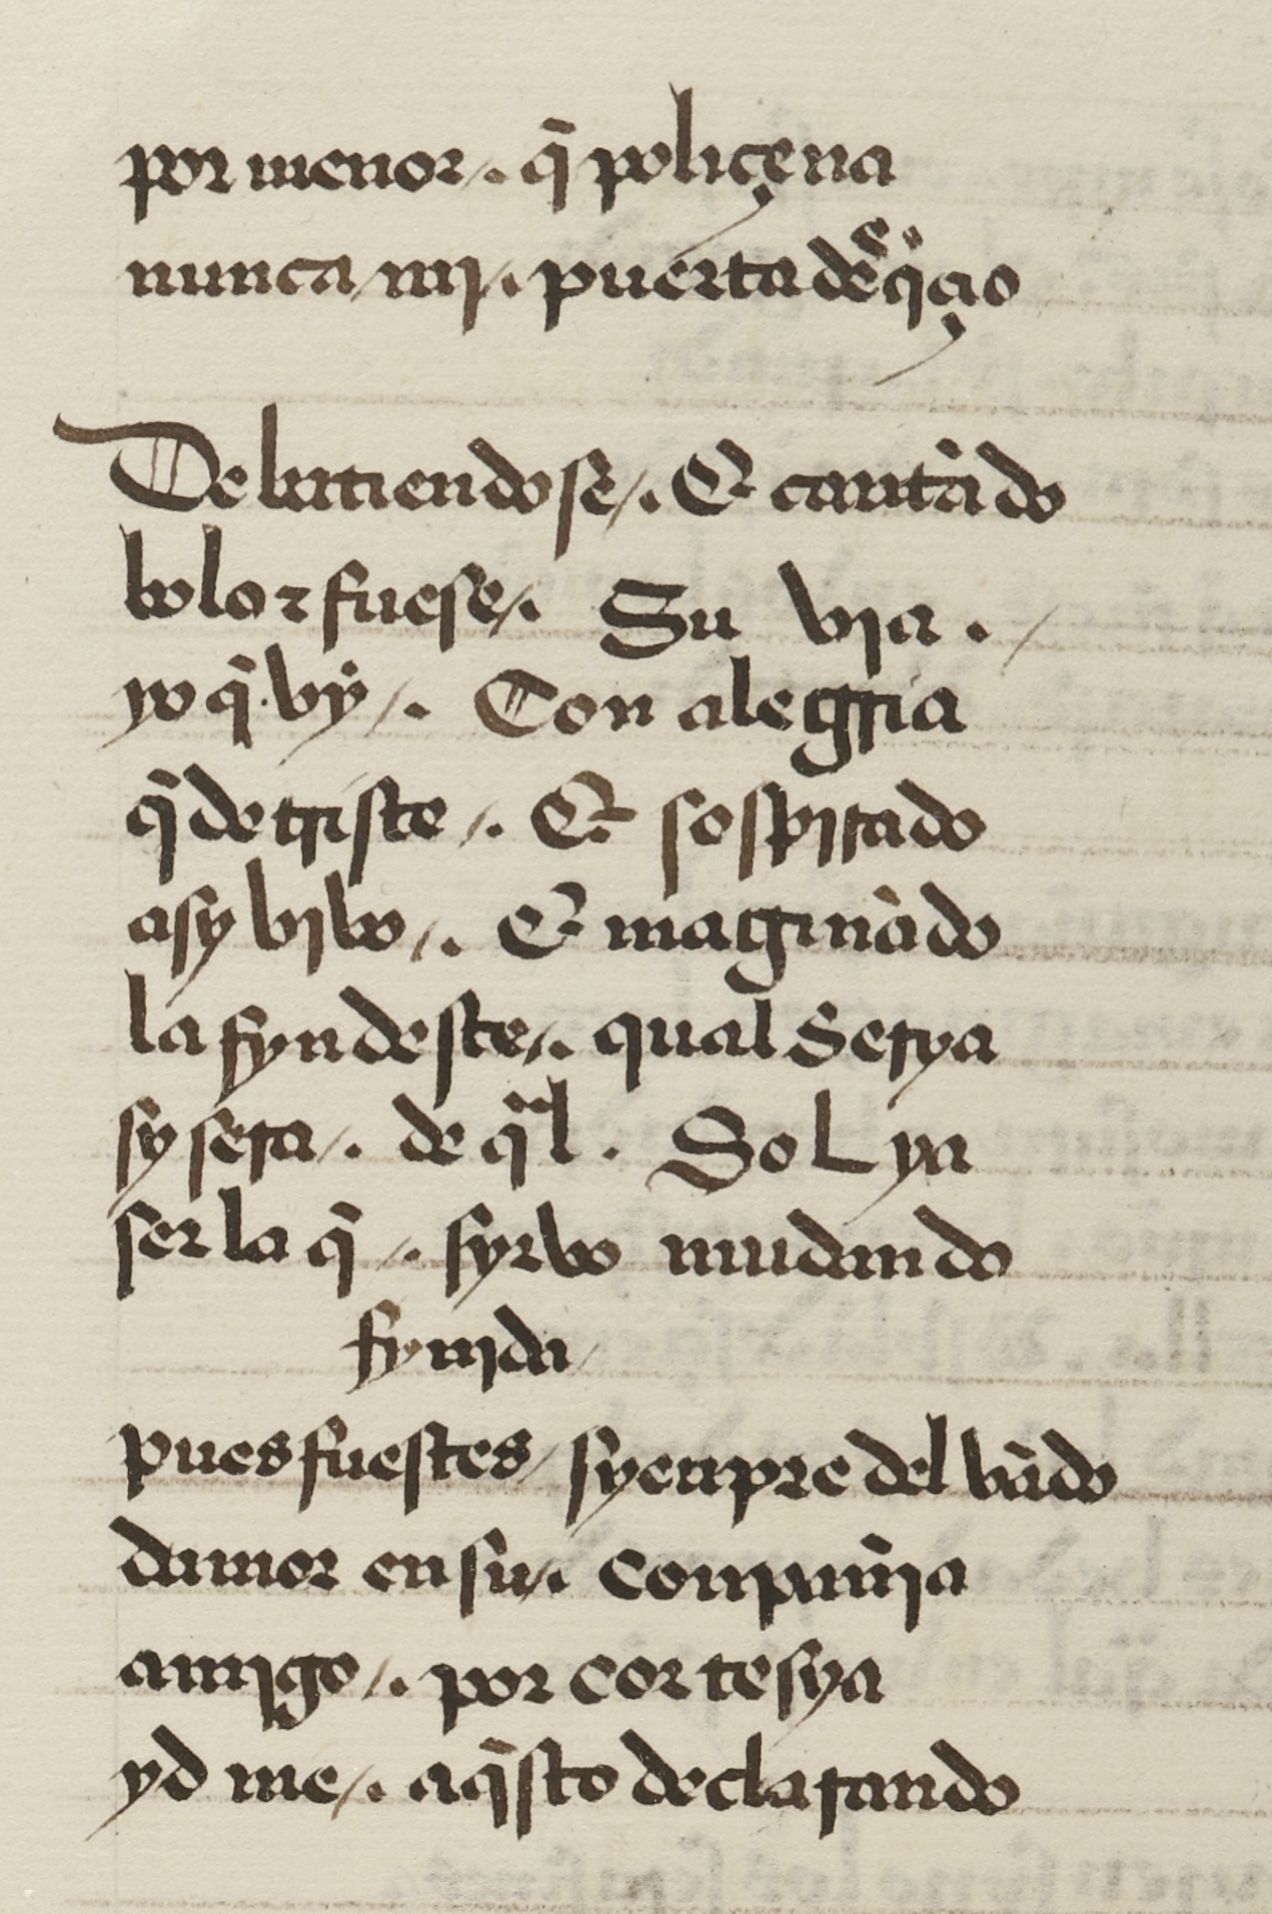 por menor ⁄. q̄ poliçena
nunca mj ⁄. puerta deq̄çio
Debatiendo se ⁄. Et cantādo
bolo z fuese ⁄. Su vja . ⁄
yo q̄ vy ⁄. Con alegria
q̄ de triste ⁄. Et sospirado
asy bibo ⁄. Et maginādo
la fyn deste ⁄. qual Serya
sy sera ⁄. de q̄l . Sol ya
ser la q̄ ⁄. syrbo mudando
fynjda ⁄
pues fuestes ⁄ syenpre del vādo
damor en su ⁄. Conpan̄ja
amjgo ⁄. por cortesya
yd me ⁄. aq̄sto declarando